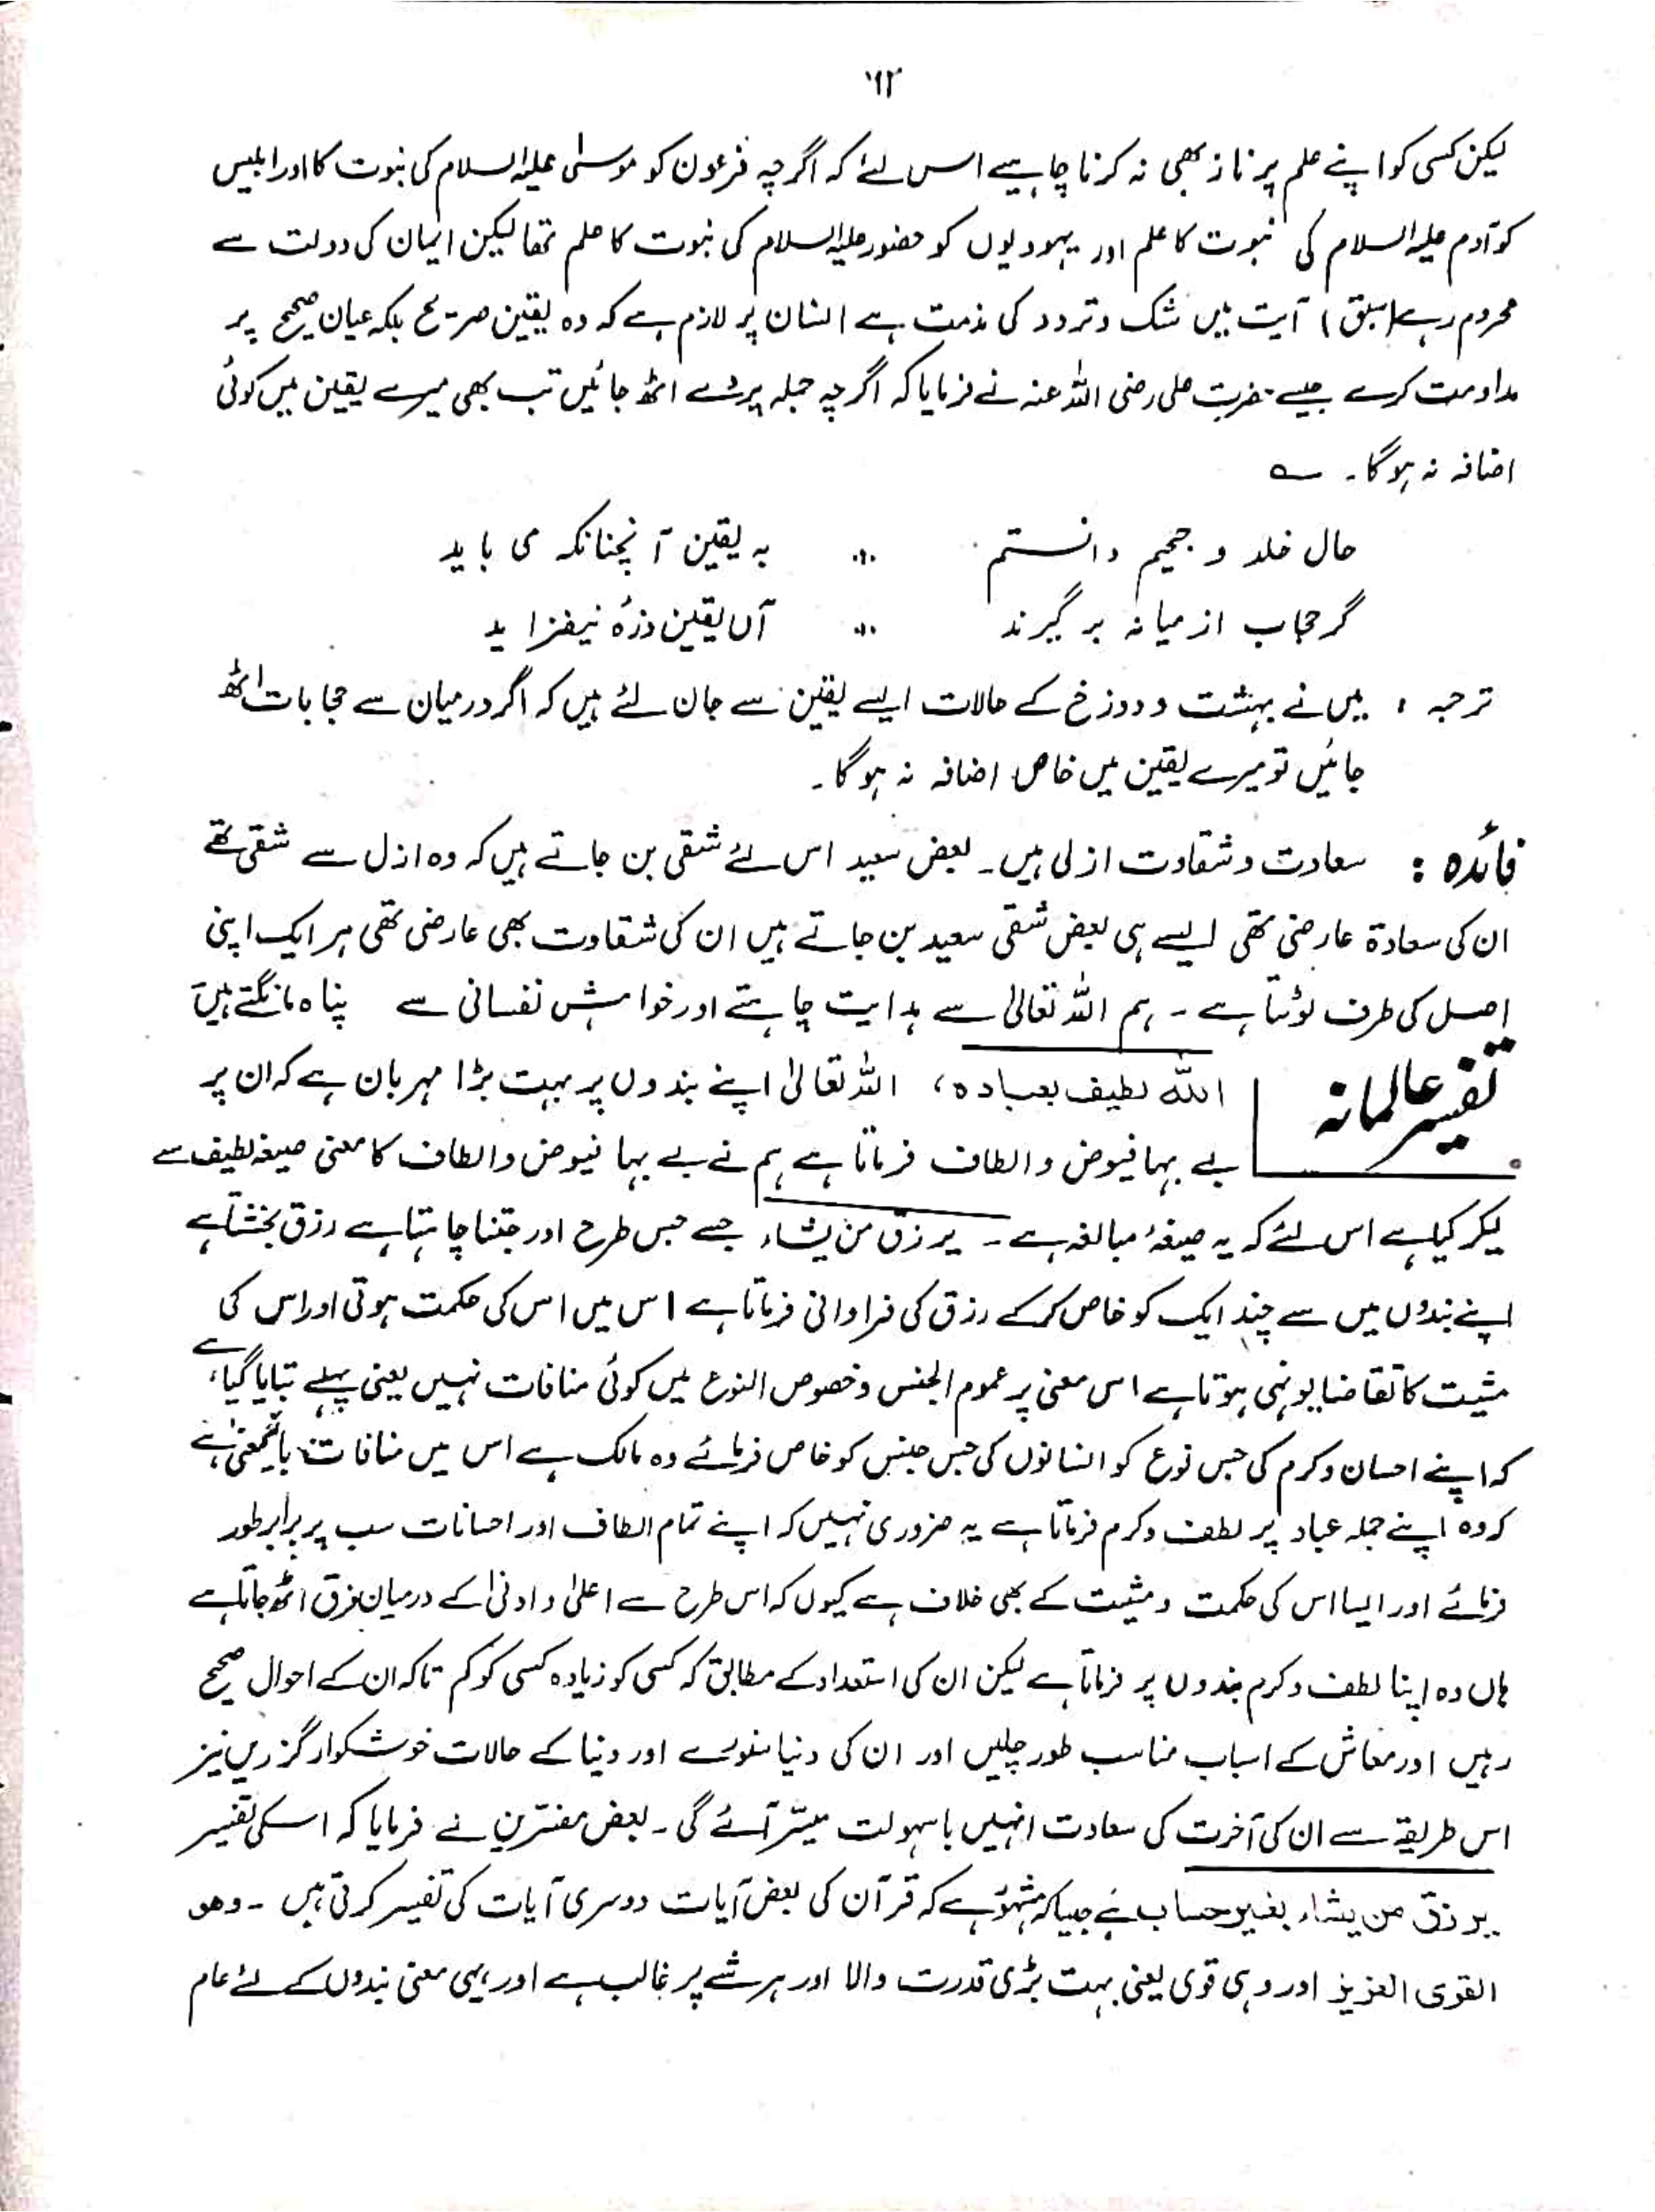 ۹۲
لیکن کسی کو اپنے علم پر ناز بھی نہ کرنا چاہیے اس لئے کہ اگرچہ فرعون کو موسیٰ علیہ السلام کی نبوت کا اور ابلیس
کو آدم علیہ السلام کی نبوت کا علم اور یہودیوں کو حضور علیہ السلام کی نبوت کا علم تھا لیکن ایمان کی دولت سے
محروم رہے (سبق) آیت میں شک و تردد کی مذمت ہے انسان پر لازم ہے کہ وہ یقین صریح بلکہ عیان صحیح پر
مداومت کرے جیسے حضرت علی رضی اللہ عنہ نے فرمایا کہ اگرچہ جملہ پردے اٹھ جائیں تب بھی میرے یقین میں کوئی
اضافہ نہ ہوگا۔ ؎
حال خلد و جحیم دانستم ؞ بہ یقین آنچنانکہ می باید
گر حجاب از میانہ بر گیرند ؞ آں یقین ذرۂ نیفزاید
ترجمہ : میں نے بہشت و دوزخ کے حالات ایسے یقین سے جان لئے ہیں کہ اگر درمیان سے حجابات اٹھ
جائیں تو میرے یقین میں خاص اضافہ نہ ہوگا۔
فائدہ : سعادت و شقاوت ازلی ہیں۔ بعض سعید اس لئے شقی بن جاتے ہیں کہ وہ ازل سے شقی تھے
ان کی سعادۃ عارضی تھی ایسے ہی بعض شقی سعید بن جاتے ہیں ان کی شقاوت بھی عارضی تھی ہر ایک اپنی
اصل کی طرف لوٹتا ہے۔ ہم اللہ تعالیٰ سے ہدایت چاہتے اور خواہش نفسانی سے پناہ مانگتے ہیں
تفسیر عالمانہ
اللہ لطیف بعبادہ، اللہ تعالیٰ اپنے بندوں پر بہت بڑا مہربان ہے کہ ان پر
بے بہا فیوض و الطاف فرماتا ہے ہم نے بے بہا فیوض و الطاف کا معنی صیغہ لطیف سے
لیکر کیا ہے اس لئے کہ یہ صیغۂ مبالغہ ہے۔ یرزق من یشاء جسے جس طرح اور جتنا چاہتا ہے رزق بخشتا ہے
اپنے بندوں میں سے چند ایک کو خاص کرکے رزق کی فراوانی فرماتا ہے اس میں اس کی حکمت ہوتی اور اس کی
مشیت کا تقاضا یونہی ہوتا ہے اس معنی پر عموم الجنس و خصوص النوع میں کوئی منافات نہیں یعنی پہلے بتایا گیا ہے
کہ اپنے احسان و کرم کی جس نوع کو انسانوں کی جس جنس کو خاص فرمائے وہ مالک ہے اس میں منافات بایمعنیٰ ہے
کہ وہ اپنے جملہ عباد پر لطف و کرم فرماتا ہے یہ ضروری نہیں کہ اپنے تمام الطاف اور احسانات سب پر برابر طور
فرمائے اور ایسا اس کی حکمت و مشیت کے بھی خلاف ہے کیوں کہ اس طرح سے اعلیٰ و ادنیٰ کے درمیان فرق اٹھ جاتا ہے
ہاں وہ اپنا لطف و کرم بندوں پر فرماتا ہے لیکن ان کی استعداد کے مطابق کہ کسی کو زیادہ کسی کو کم تاکہ ان کے احوال صحیح
رہیں اور معاش کے اسباب مناسب طور چلیں اور ان کی دنیا سنورے اور دنیا کے حالات خوشگوار گزریں نیز
اس طریقے سے ان کی آخرت کی سعادت انہیں باسہولت میسّر آئے گی۔ بعض مفسّرین نے فرمایا کہ اسکی تفسیر
یرزق من یشاء بغیر حساب ہے جیسا کہ مشہور ہے کہ قرآن کی بعض آیات دوسری آیات کی تفسیر کرتی ہیں۔ وھو
القوی العزیز اور وہی قوی یعنی بہت بڑی قدرت والا اور ہر شے پر غالب ہے اور یہی معنی بندوں کے لئے عام